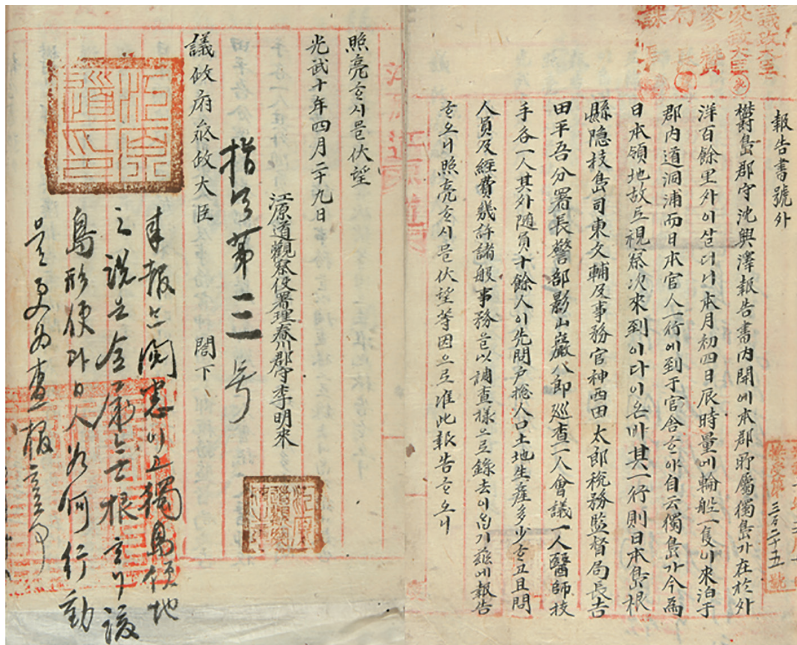 議政大臣
參政大臣
參贊
局長
課長
報告書號外
欝島郡守沈興澤報告書內開에本郡所屬獨島가在於外
洋百餘里外이살더니本月初四日辰時量에輪船一隻이來泊于
郡內道洞浦而日本官人一行에到于官舍ᄒᆞ야自云獨島가今爲
日本領地故로視察次來到이다이온바其一行則日本島根
縣隱枝島司東文輔及事務官神西田太郎稅務監督局長吉
田平吾分署長警部影山巖八郎巡査一人會議一人醫師技
手各一人其外隨員十餘人이先問戶摠人口土地生産多少ᄒᆞ고且問
人員及經費幾許諸般事務을以調査樣으로錄去이압기玆에報告
ᄒᆞ오니照亮ᄒᆞ시믈伏望等因으로准此報告ᄒᆞ오니
照亮ᄒᆞ시믈伏望
光武十年四月二十九日
江原道觀察使署理春川郡守李明來
議政府參政大臣 閣下
指令第三号
來報는閱悉이고獨島領地
之說은全屬無根하나該
島形便과日人如何行動
을更爲查報할事
江原道印